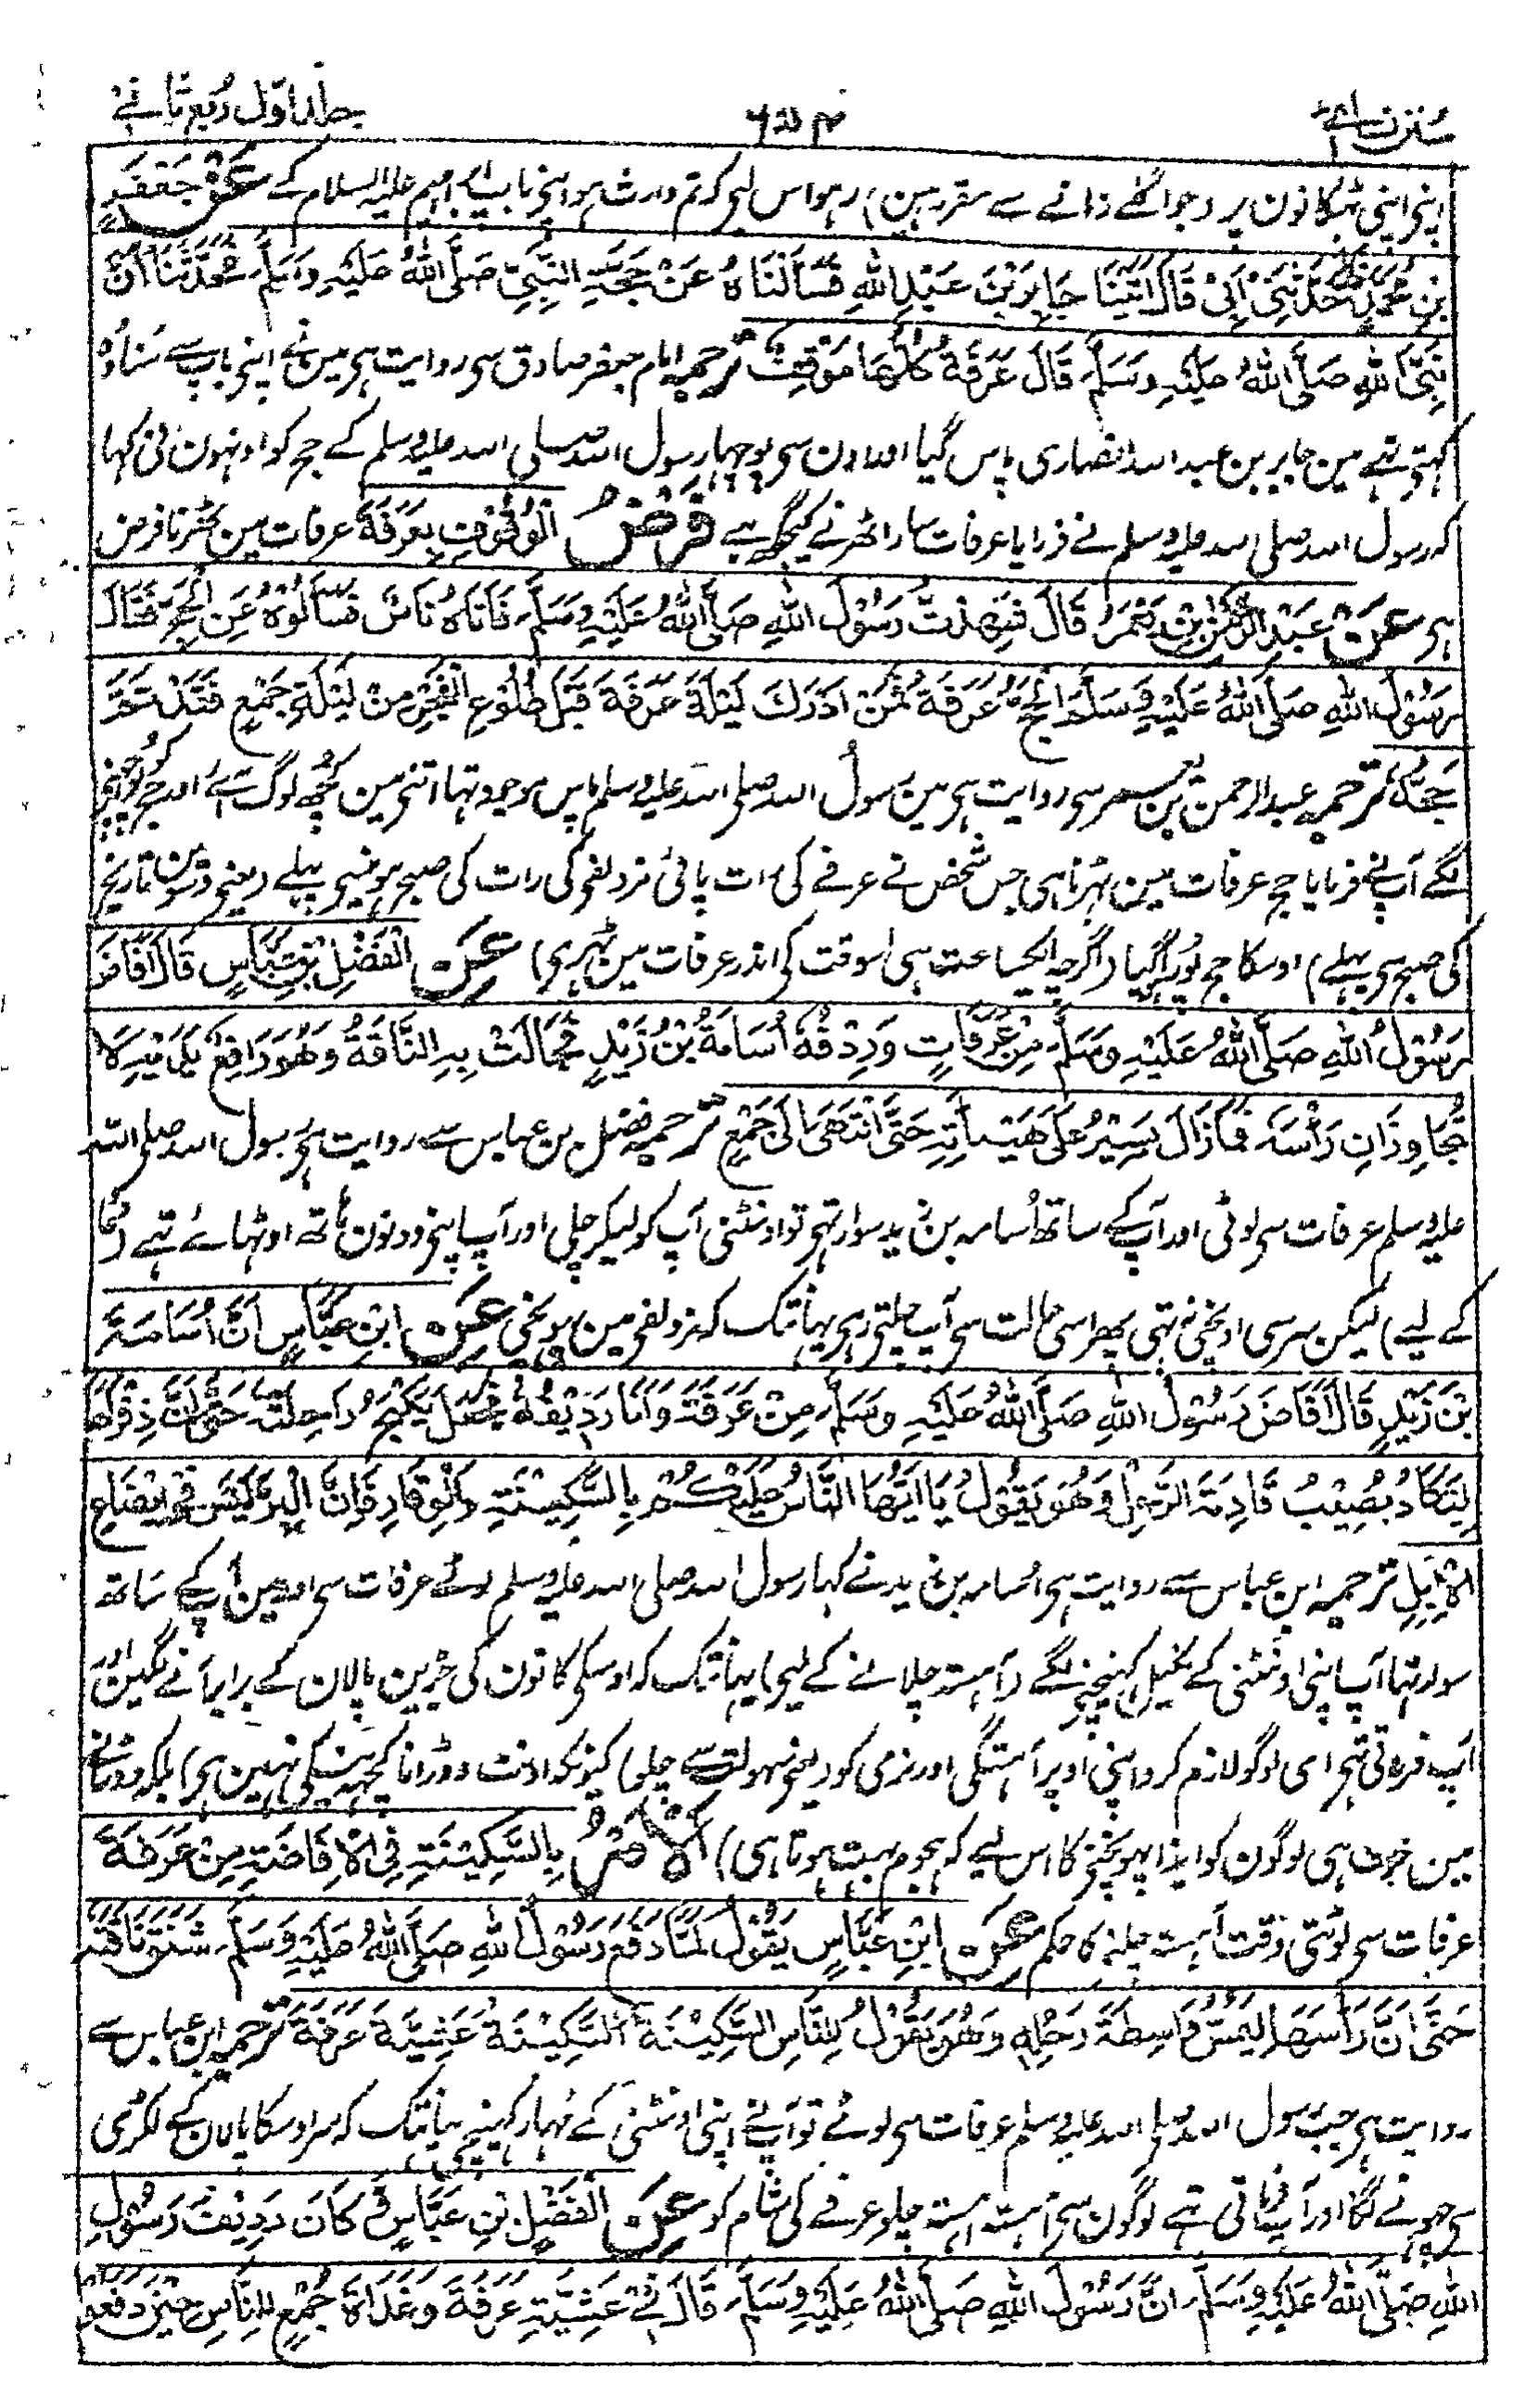 سنن نسائی جلد اول ربع ثانی
اپنی اپنی ٹھکانون پر (جو اگلے زمانے سے مقرر ہین) رہو اس لیے کہ تم وارث ہو اپنی باپ ابراہیم علیہ السلام کے عَنْ جَعْفَرِ
بْنِ مُحَمَّدٍ حَدَّثَنِیْ اَبِیْ قَالَ اَتَیْنَا جَابِرَ بْنَ عَبْدِ اللهِ فَسَاَلْنَاهُ عَنْ حَجَّةِ النَّبِيِّ صَلَّى اللهُ عَلَيْهِ وَسَلَّمَ فَحَدَّثَنَا اَنَّ
نَبِیَّ اللهِ صَلَّى اللهُ عَلَيْهِ وَسَلَّمَ قَالَ عَرَفَةُ كُلُّهَا مَوْقِفٌ ترجمہ امام جعفر صادق سی روایت ہی مین نے اپنی باپ سے سنا وُہ
کہتی تہے مین جابر بن عبد اللہ انصاری پاس گیا اور اون سی پوچہا رسول اللہ صلی اللہ علیہ وسلم کے حج کو اونہون نی کہا
کہ رسول اللہ صلی اللہ علیہ وسلم نے فرمایا عرفات سارا ٹھرنے کیجگہ ہے فَرْضُ الْوُقُوْفِ بِعَرَفَةَ عرفات مین ٹھرنا فرض
ہی عَنْ عَبْدِ الرَّحْمٰنِ بْنِ یَعْمَرَ قَالَ شَهِدْتُ رَسُوْلَ اللهِ صَلَّى اللهُ عَلَيْهِ وَسَلَّمَ فَاَتَاهُ نَاسٌ فَسَاَلُوْهُ عَنِ الْحَجِّ فَقَالَ
رَسُوْلُ اللهِ صَلَّى اللهُ عَلَيْهِ وَسَلَّمَ الْحَجُّ عَرَفَةُ فَمَنْ اَدْرَكَ لَيْلَةَ عَرَفَةَ قَبْلَ طُلُوْعِ الْفَجْرِ مِنْ لَيْلَةِ جَمْعٍ فَقَدْ تَمَّ
حَجُّهٗ ترجمہ عبد الرحمن بن یعمر سی روایت ہی مین رسول اللہ صلی اللہ علیہ وسلم پاس موجود تہا اتنی مین کچھ لوگ آئے اور حج کو پوچہنی
لگے آپ نے فرمایا حج عرفات مین ٹہرنا ہی جس شخص نے عرفے کی رات پائی مزدلفی کی رات کی صبح ہونیسی پہلے (یعنی دسوین تاریخ
کی صبح سی پہلے) اوسکا حج پورا ہوگیا (اگرچہ ایکساعت ہی اوسوقت کی اندر عرفات مین ٹہری) عَنِ الْفَضْلِ بْنِ عَبَّاسٍ قَالَ اَفَاضَ
رَسُوْلُ اللهِ صَلَّى اللهُ عَلَيْهِ وَسَلَّمَ مِنْ عَرَفَاتٍ وَرِدْفُهٗ اُسَامَةُ بْنُ زَيْدٍ فَجَالَتْ بِهِ النَّاقَةُ وَهُوَ رَافِعٌ يَدَيْهِ لَا
تُجَاوِزَانِ رَاْسَهٗ فَمَا زَالَ يَسِيْرُ عَلٰى هَيْئَاتِهٖ حَتّٰى انْتَهٰى اِلٰى جَمْعٍ ترجمہ فضل بن عباس سے روایت ہی رسول اللہ صلی اللہ
علیہ وسلم عرفات سی لوٹی اور آپ کے ساتھ اُسامہ بن زید سوار تہی تو اونٹنی آپ کو لیکر چلی اور آپ اپنی دونون ہاتھ اوٹہائے تہے (دعا
کے لیے) لیکن سر سی اونچی نہ تہی پھر اسی حالت سی آپ چلتی رہی یہانتک کہ مزدلفی مین پہونچی عَنِ ابْنِ عَبَّاسٍ اَنَّ اُسَامَةَ
بْنَ زَيْدٍ قَالَ اَفَاضَ رَسُوْلُ اللهِ صَلَّى اللهُ عَلَيْهِ وَسَلَّمَ مِنْ عَرَفَةَ وَاَنَا رَدِيْفُهٗ فَجَعَلَ يَكْبَحُ رَاحِلَتَهٗ حَتّٰى اَنَّ ذِفْرَاهَا
لَيَكَادُ يُصِيْبُ قَادِمَةَ الرَّحْلِ وَهُوَ يَقُوْلُ يَا اَيُّهَا النَّاسُ عَلَيْكُمْ بِالسَّكِيْنَةِ وَالْوَقَارِ فَاِنَّ الْبِرَّ لَيْسَ فِيْ اِيْضَاعِ
الْاِبِلِ ترجمہ ابن عباس سے روایت ہی اُسامہ بن زید نے کہا رسول اللہ صلی اللہ علیہ وسلم لوٹے عرفات سی اور مین آپ کے ساتھ
سوار تہا آپ اپنی اونٹنی کے نکیل کہینچنے لگے (آہستہ چلانے کے لیے) یہانتک کہ اوسکی کانون کی جڑین پالان کے برابر آنے لگین اور
آپ فرماتی تہی ای لوگو لازم کرو اپنی اوپر آہستگی اور نرمی کو (یعنی سہولت سے چلو) کیونکہ اونٹ دوڑانا کچھ نیکی نہین ہی (بلکہ دوڑانے
مین خوف ہی لوگون کو ایذا پہونچنی کا اس لیے کہ ہجوم بہت ہوتا ہی) اَلْاَمْرُ بِالسَّكِيْنَةِ فِي الْاِفَاضَةِ مِنْ عَرَفَةَ
عرفات سی لوٹتی وقت آہستہ چلنے کا حکم عَنِ ابْنِ عَبَّاسٍ يَقُوْلُ لَمَّا دَفَعَ رَسُوْلُ اللهِ صَلَّى اللهُ عَلَيْهِ وَسَلَّمَ شَنَقَ نَاقَتَهٗ
حَتّٰى اَنَّ رَاْسَهَا لَيَمَسُّ وَاسِطَةَ رَحْلِهٖ وَهُوَ يَقُوْلُ لِلنَّاسِ السَّكِيْنَةَ السَّكِيْنَةَ عَشِيَّةَ عَرَفَةَ ترجمہ ابن عباس سے
روایت ہی جب رسول اللہ صلی اللہ علیہ وسلم عرفات سی لوٹے تو آپ نے اپنی اونٹنی کے مُہار کہینچی یہانتک کہ سر اوسکا پالان کے لکڑی
سی چہونے لگا اور آپ فرماتی تہے لوگون سی آہستہ آہستہ چلو عرفے کی شام کو عَنِ الْفَضْلِ بْنِ عَبَّاسٍ وَكَانَ رَدِيْفَ رَسُوْلِ
اللهِ صَلَّى اللهُ عَلَيْهِ وَسَلَّمَ اَنَّ رَسُوْلَ اللهِ صَلَّى اللهُ عَلَيْهِ وَسَلَّمَ قَالَ فِيْ عَشِيَّةِ عَرَفَةَ وَغَدَاةَ جَمْعٍ لِلنَّاسِ حِيْنَ دَفَعُوْا